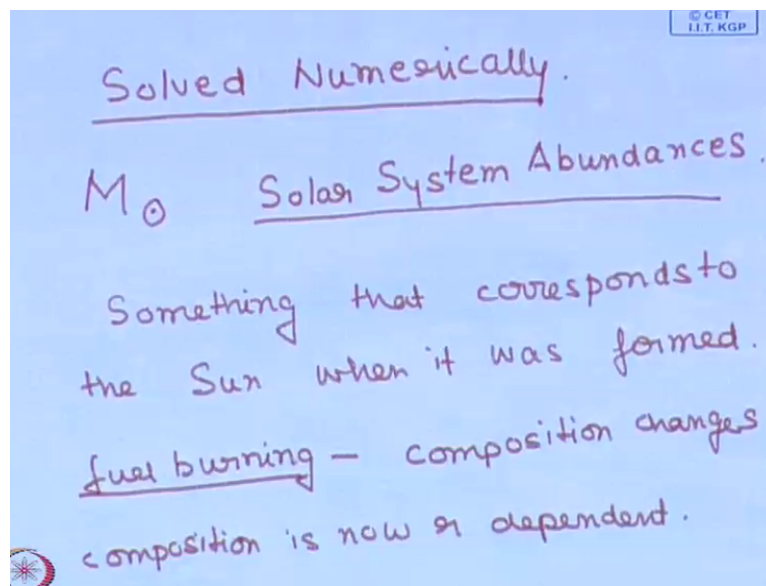 © CET
I.I.T. KGP
Solved Numerically.
M⊙ Solar System Abundances.
Something that corresponds to
the Sun when it was formed.
fuel burning – composition changes
composition is now r dependent.